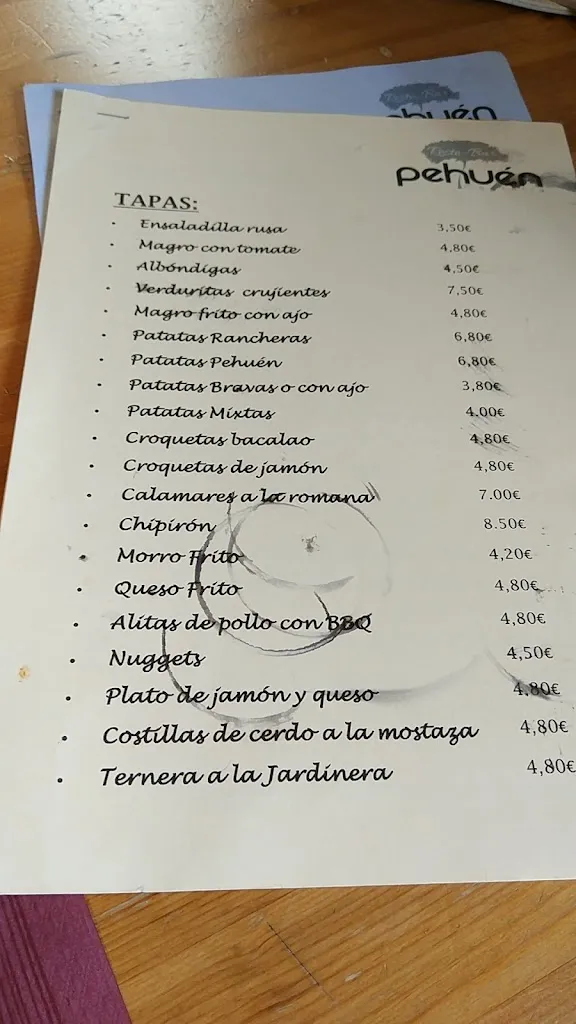 ehuén
Resto-Bar
pehuén
TAPAS:
• Ensaladilla rusa 3,50€
• Magro con tomate 4,80€
• Albóndigas 4,50€
• Verduritas crujientes 7,50€
• Magro frito con ajo 4,80€
• Patatas Rancheras 6,80€
• Patatas Pehuén 6,80€
• Patatas Bravas o con ajo 3,80€
• Patatas Mixtas 4.00€
• Croquetas bacalao 4,80€
• Croquetas de jamón 4,80€
• Calamares a la romana 7.00€
• Chipirón 8.50€
• Morro Frito 4,20€
• Queso Frito 4,80€
• Alitas de pollo con BBQ 4,80€
• Nuggets 4,50€
• Plato de jamón y queso 4,80€
• Costillas de cerdo a la mostaza 4,80€
• Ternera a la Jardinera 4,80€